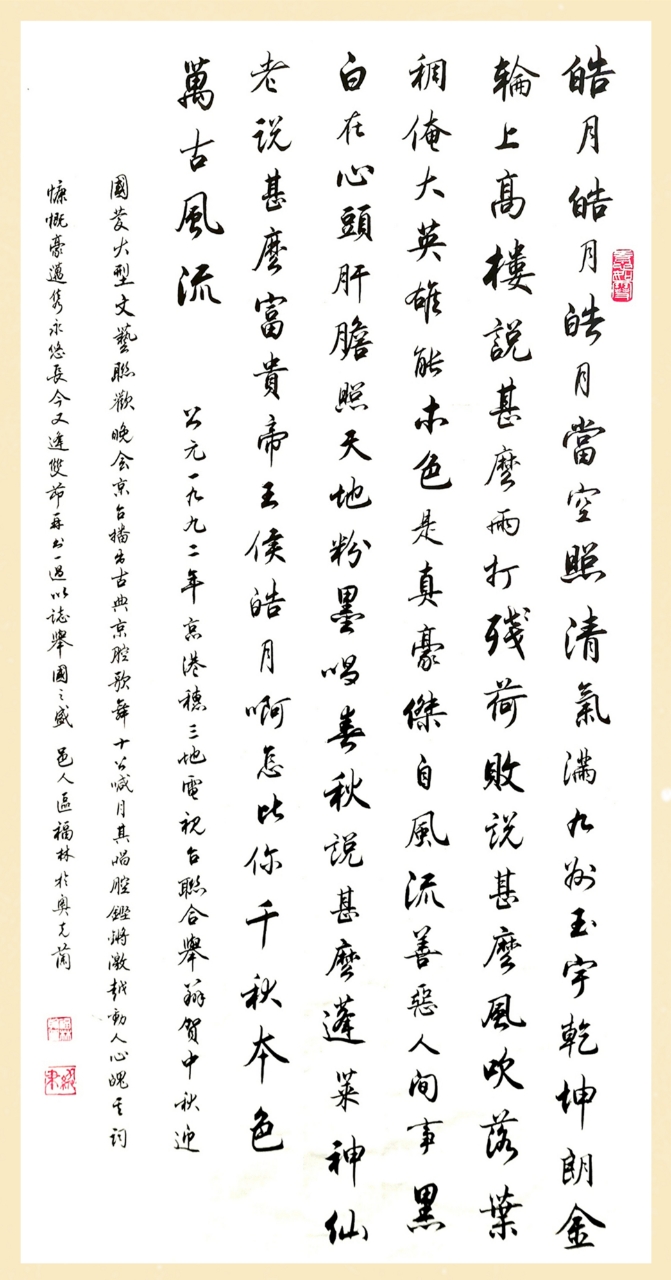 皓月皓月皓月當空照清氣滿九州玉宇乾坤朗金
輪上高樓説甚麽雨打殘荷敗説甚麽風吹落葉
稠俺大英雄能本色是真豪傑自風流善惡人間事黑
白在心頭肝膽照天地粉墨唱春秋説甚麽蓬萊神仙
老説甚麽富貴帝王侯皓月啊怎比你千秋本色
萬古風流
公元一九九二年京港穗三地電視台聯合舉辦賀中秋迎
國慶大型文藝聯歡晚会京台播出古典京腔歌舞十公喊月其唱腔鏗鏘激越動人心魄其詞
慷慨豪邁雋永悠長今又逢雙節再书一過以誌舉國之盛 邑人區福林於奧克蘭